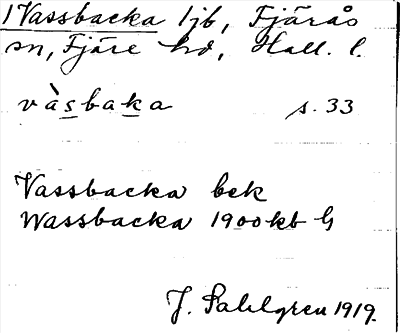 1 Vassbacka ljb, Fjärås
sn, Fjäre hd, Hall. l.
vàsbaka s. 33
Vassbacka bek
Wassbacka 1900 kb G
J. Sahlgren 1919.